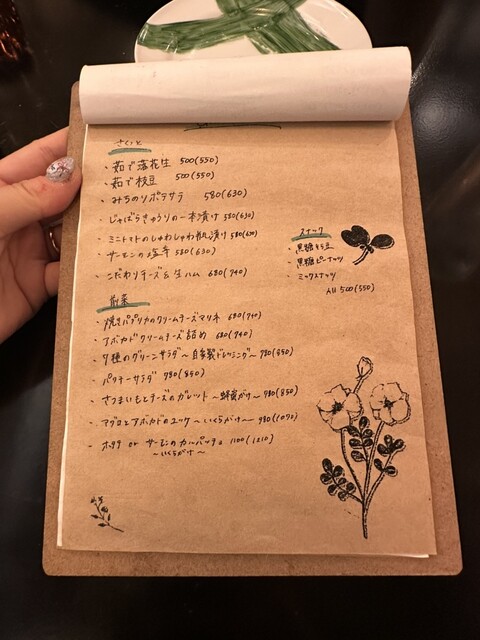 さくっと
・茹で落花生 500(550)
・茹で枝豆 500(550)
・みちのりポテサラ 580(630)
・じゃばらきゅうりの一本漬け 580(630)
・ミニトマトのしゅわしゅわ瓶漬け 580(630)
・サーモンの塩辛 580(630)
・こだわりチーズ&生ハム 680(740)
前菜
・焼きパプリカのクリームチーズマリネ 680(740)
・アボカドクリームチーズ詰め 680(740)
・7種のグリーンサラダ〜自家製ドレッシング〜 780(850)
・パクチーサラダ 780(850)
・さつまいもとチーズのガレット〜蜂蜜がけ〜 780(850)
・マグロとアボカドのユッケ〜いくらがけ〜 980(1070)
・ホタテ or サーモンのカルパッチョ 1100(1210)
〜いくらがけ〜
スナック
・黒糖そら豆
・黒糖ピーナッツ
・ミックスナッツ
All 500(550)